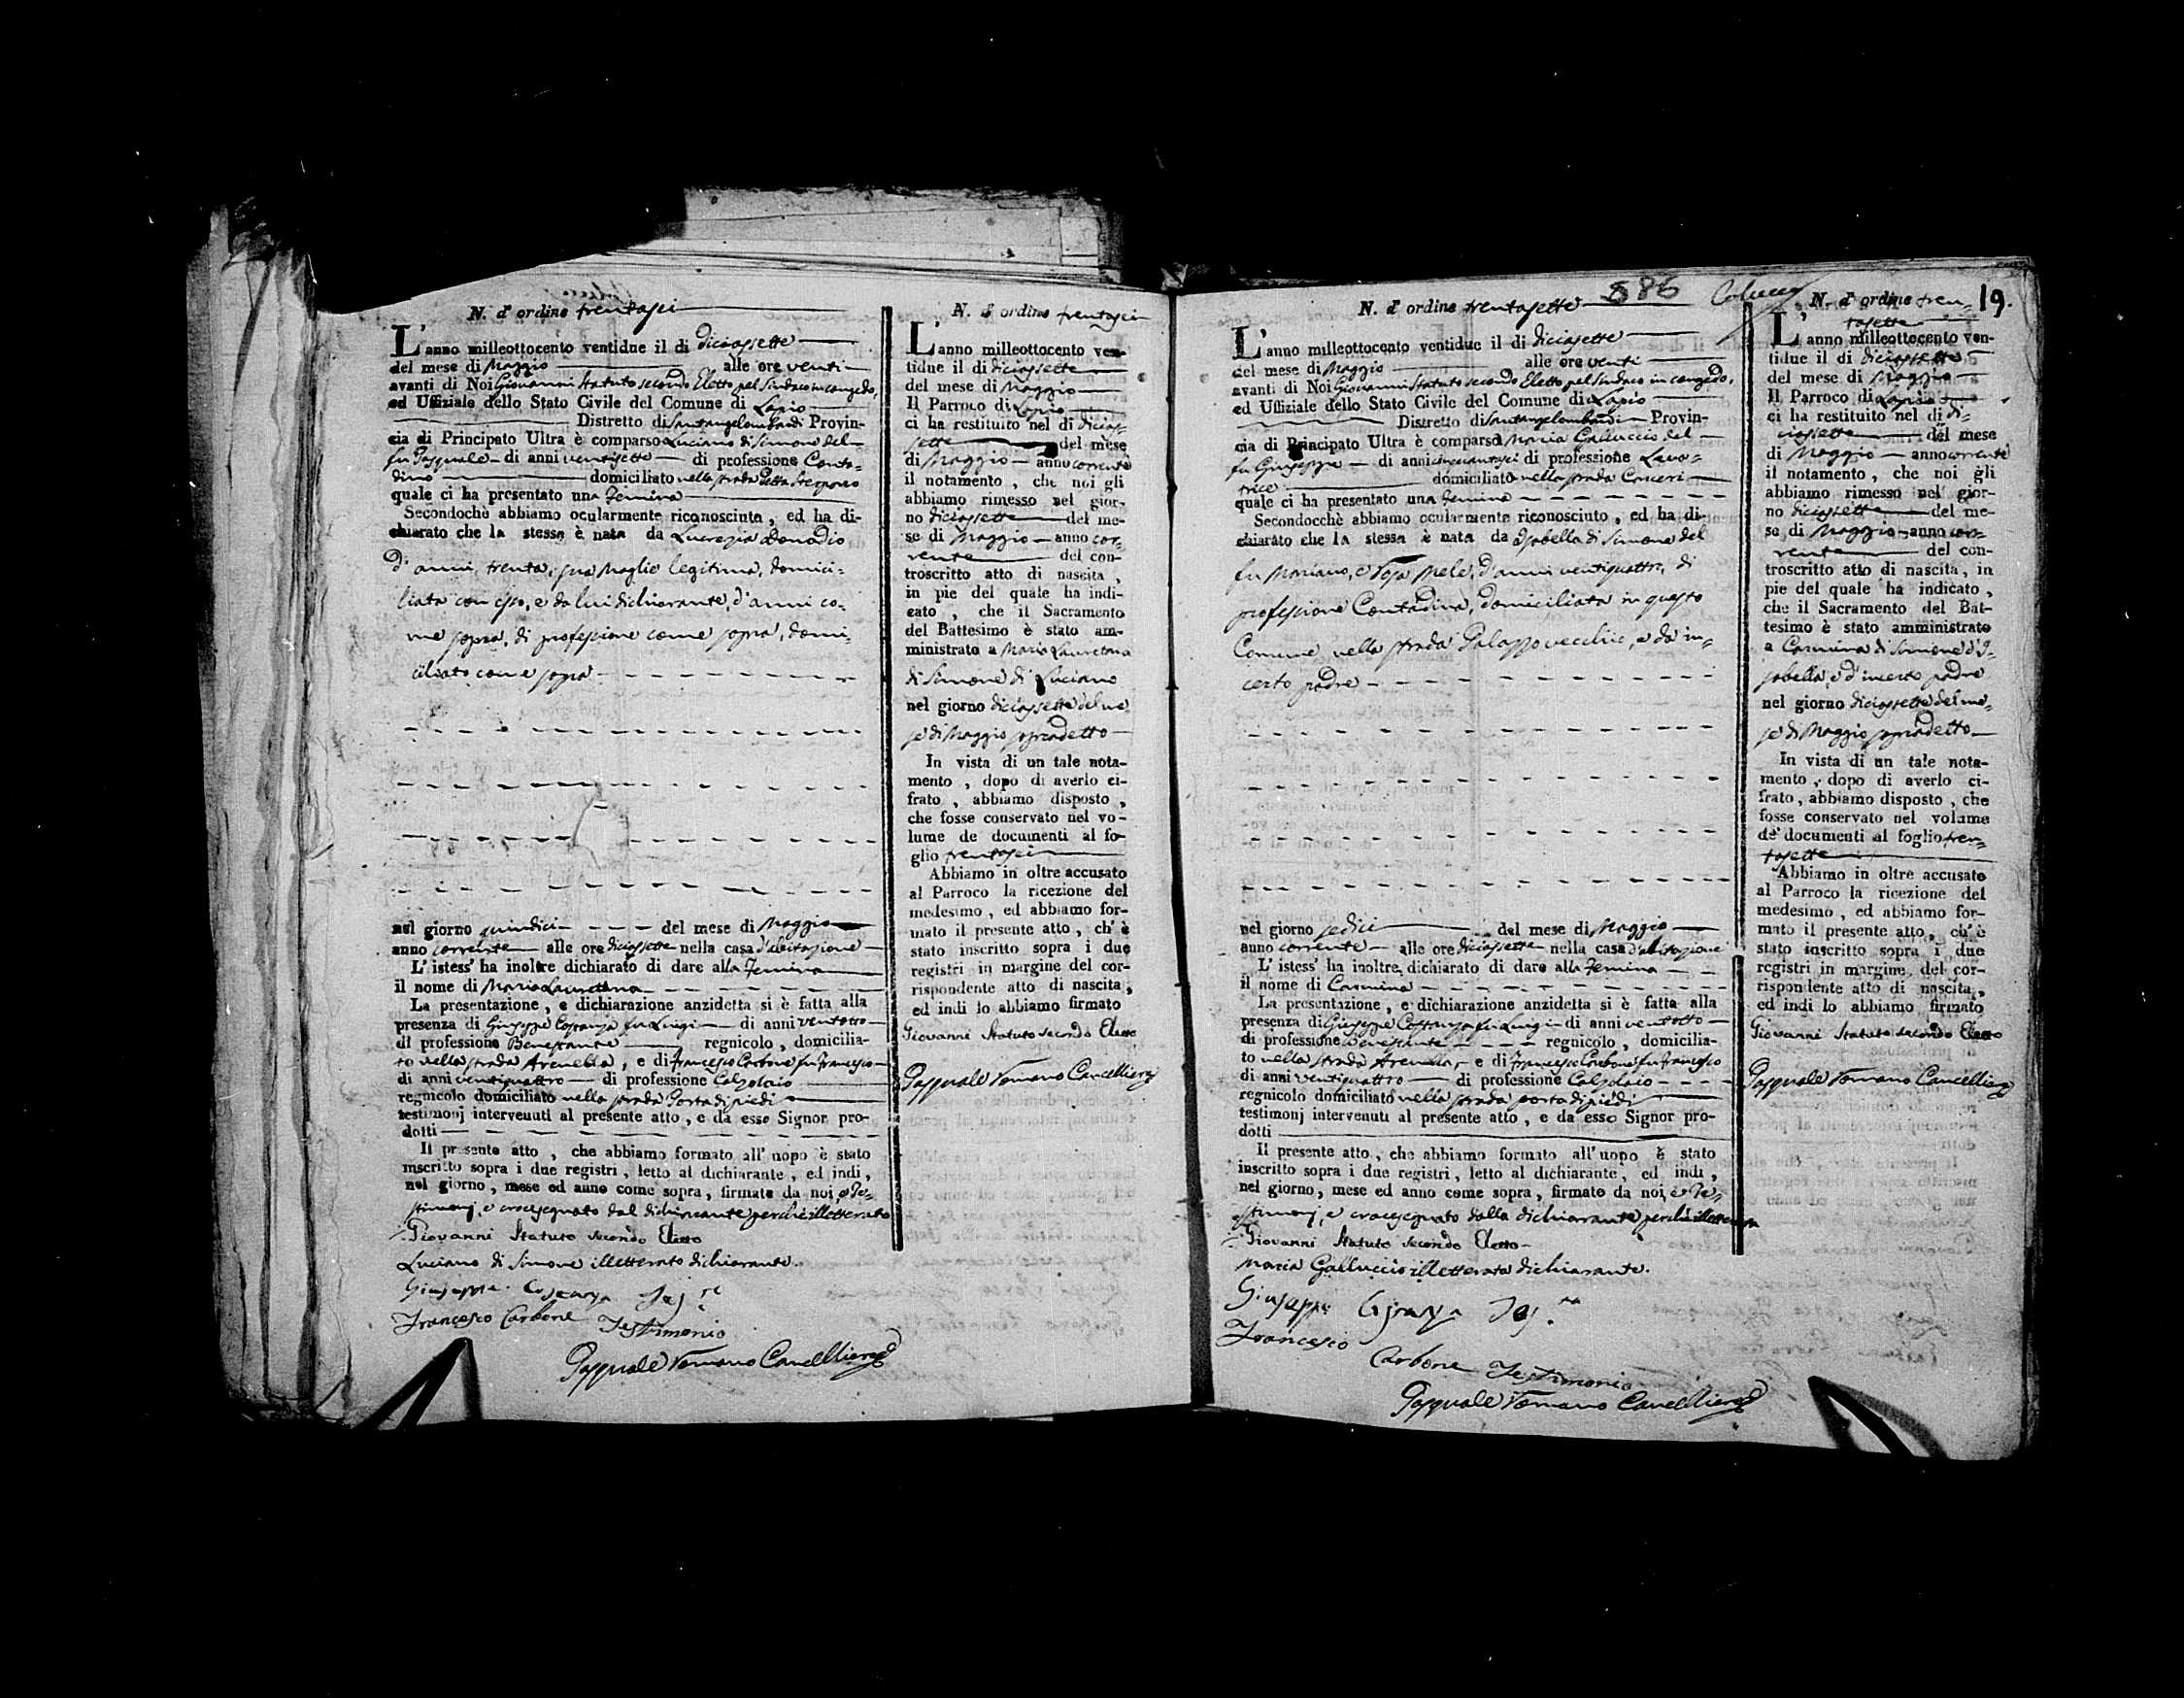 N. d' ordine trentasei
L' anno milleottocento ventidue il di diciassette
del mese di Maggio alle ore venti
avanti di Noi Giovanni Statuto secondo Eletto pel Sindaco in congedo,
ed Uffiziale dello Stato Civile del Comune di Lapio
Distretto di Santangelombardi Provin-
cia di Principato Ultra è comparso Luciano di Simone del
fu Pasquale di anni ventisette di professione Conta-
dino domiciliato nella strada detta
quale ci ha presentato una Femina
Secondochè abbiamo ocularmente riconosciuta, ed ha di-
chiarato che la stessa è nata da Lucrezia Donadio
d' anni trenta, sua Moglie legitima, domici-
liata con esso, e da lui dichiarante, d'anni co-
me sopra, di professione come sopra, domi-
ciliato come sopra
nel giorno quindici del mese di Maggio
anno corrente alle ore diciassette nella casa d'abitazione
L' istess' ha inoltre dichiarato di dare alla Femina
il nome di Maria Lauretana
La presentazione, e dichiarazione anzidetta si è fatta alla
presenza di Giuseppe Costanza fu Luigi di anni ventotto
di professione Benestante regnicolo, domicilia-
to nella strada Arenella, e di Francesco Carbone fu Francesco
di anni ventiquattro di professione Calzolaio
regnicolo domiciliato nella strada Porta di piedi
testimonj intervenuti al presente atto, e da esso Signor pro-
dotti
Il presente atto, che abbiamo formato all' uopo è stato
inscritto sopra i due registri, letto al dichiarante, ed indi,
nel giorno, mese ed anno come sopra, firmato da noi, e Te-
stimonj, e crocesegnato dal dichiarante perchè illetterato
Giovanni Statuto secondo Eletto
Luciano di Simone illetterato dichiarante.
Giuseppe Costanza
Francesco Carbone Testimonio
Pasquale Romano Cancelliere
N. d' ordine trentasei
L' anno milleottocento ven-
tidue il di diciassette
del mese di Maggio
Il Parroco di Lapio
ci ha restituito nel di dicias-
sette del mese
di Maggio anno corrente
il notamento, che noi gli
abbiamo rimesso nel gior-
no diciassette del me-
se di Maggio anno cor-
rente del con-
troscritto atto di nascita,
in pie del quale ha indi-
cato, che il Sacramento
del Battesimo è stato am-
ministrato a Maria Lauretana
di Simone di Luciano
nel giorno diciassette del me-
se di Maggio sopradetto
In vista di un tale nota-
mento, dopo di averlo ci-
frato, abbiamo disposto,
che fosse conservato nel vo-
lume de documenti al fo-
glio trentasei
Abbiamo in oltre accusato
al Parroco la ricezione del
medesimo, ed abbiamo for-
mato il presente atto, ch' è
stato inscritto sopra i due
registri in margine del cor-
rispondente atto di nascita,
ed indi lo abbiamo firmato
Giovanni Statuto secondo Eletto
Pasquale Romano Cancelliere
N. d' ordine trentasette 586
L' anno milleottocento ventidue il di diciasette
del mese di Maggio alle ore venti
avanti di Noi Giovanni Statuto secondo Eletto pel Sindaco in congedo,
ed Uffiziale dello Stato Civile del Comune di Lapio
Distretto di Santangelombardi Provin-
cia di Principato Ultra è comparsa Maria Galluccio del
fu Giuseppe di anni cinquantasei di professione Leva-
trice domiciliato nella strada Canceri
quale ci ha presentato una Femina
Secondocchè abbiamo ocularmente riconosciuto, ed ha di-
chiarato che la stessa è nata da Isabella di Simone del
fu Mariano, e Rosa Mele, d'anni ventiquattro, di
professione Contadina, domiciliata in questo
Comune nella strada Palazzo vecchio, e da in-
certo padre
nel giorno sedici del mese di Maggio
anno corrente alle ore diciassette nella casa d'abitazione
L' istess' ha inoltre dichiarato di dare alla Femina
il nome di Carmina
La presentazione, e dichiarazione anzidetta si è fatta alla
presenza di Giuseppe Costanza fu Luigi di anni ventotto
di professione Benestante regnicolo, domicilia-
to nella strada Arenella, e di Francesco Carbone fu Francesco
di anni ventiquattro di professione Calzolaio
regnicolo domiciliato nella strada porta di piedi
testimonj intervenuti al presente atto, e da esso Signor pro-
dotti
Il presente atto, che abbiamo formato all' uopo è stato
inscritto sopra i due registri, letto al dichiarante, ed indi,
nel giorno, mese ed anno come sopra, firmato da noi, e Te-
stimonj, e crocesegnato dalla dichiarante perchè illetterata
Giovanni Statuto secondo Eletto
Maria Galluccio illetterata dichiarante.
Giuseppe Costanza
Francesco
Carbone Testimonio
Pasquale Romano Cancelliere
N. d' ordine tren- 19.
tasette
L' anno milleottocento ven-
tidue il di diciassette
del mese di Maggio
Il Parroco di Lapio
ci ha restituito nel di di-
ciassette del mese
di Maggio anno corrente
il notamento, che noi gli
abbiamo rimesso nel gior-
no diciassette del me-
se di Maggio anno cor-
rente del con-
troscritto atto di nascita, in
pie del quale ha indicato,
che il Sacramento del Bat-
tesimo è stato amministrato
a Carmina di Simone d'I-
sabella, e d' incerto padre
nel giorno diciassette del me-
se di Maggio sopradetto
In vista di un tale nota-
mento, dopo di averlo ci-
frato, abbiamo disposto, che
fosse conservato nel volume
de' documenti al foglio tren-
tasette
Abbiamo in oltre accusato
al Parroco la ricezione del
medesimo, ed abbiamo for-
mato il presente atto, ch' è
stato inscritto sopra i due
registri in margine del cor-
rispondente atto di nascita,
ed indi lo abbiamo firmato
Giovanni Statuto secondo Eletto
Pasquale Romano Cancelliere